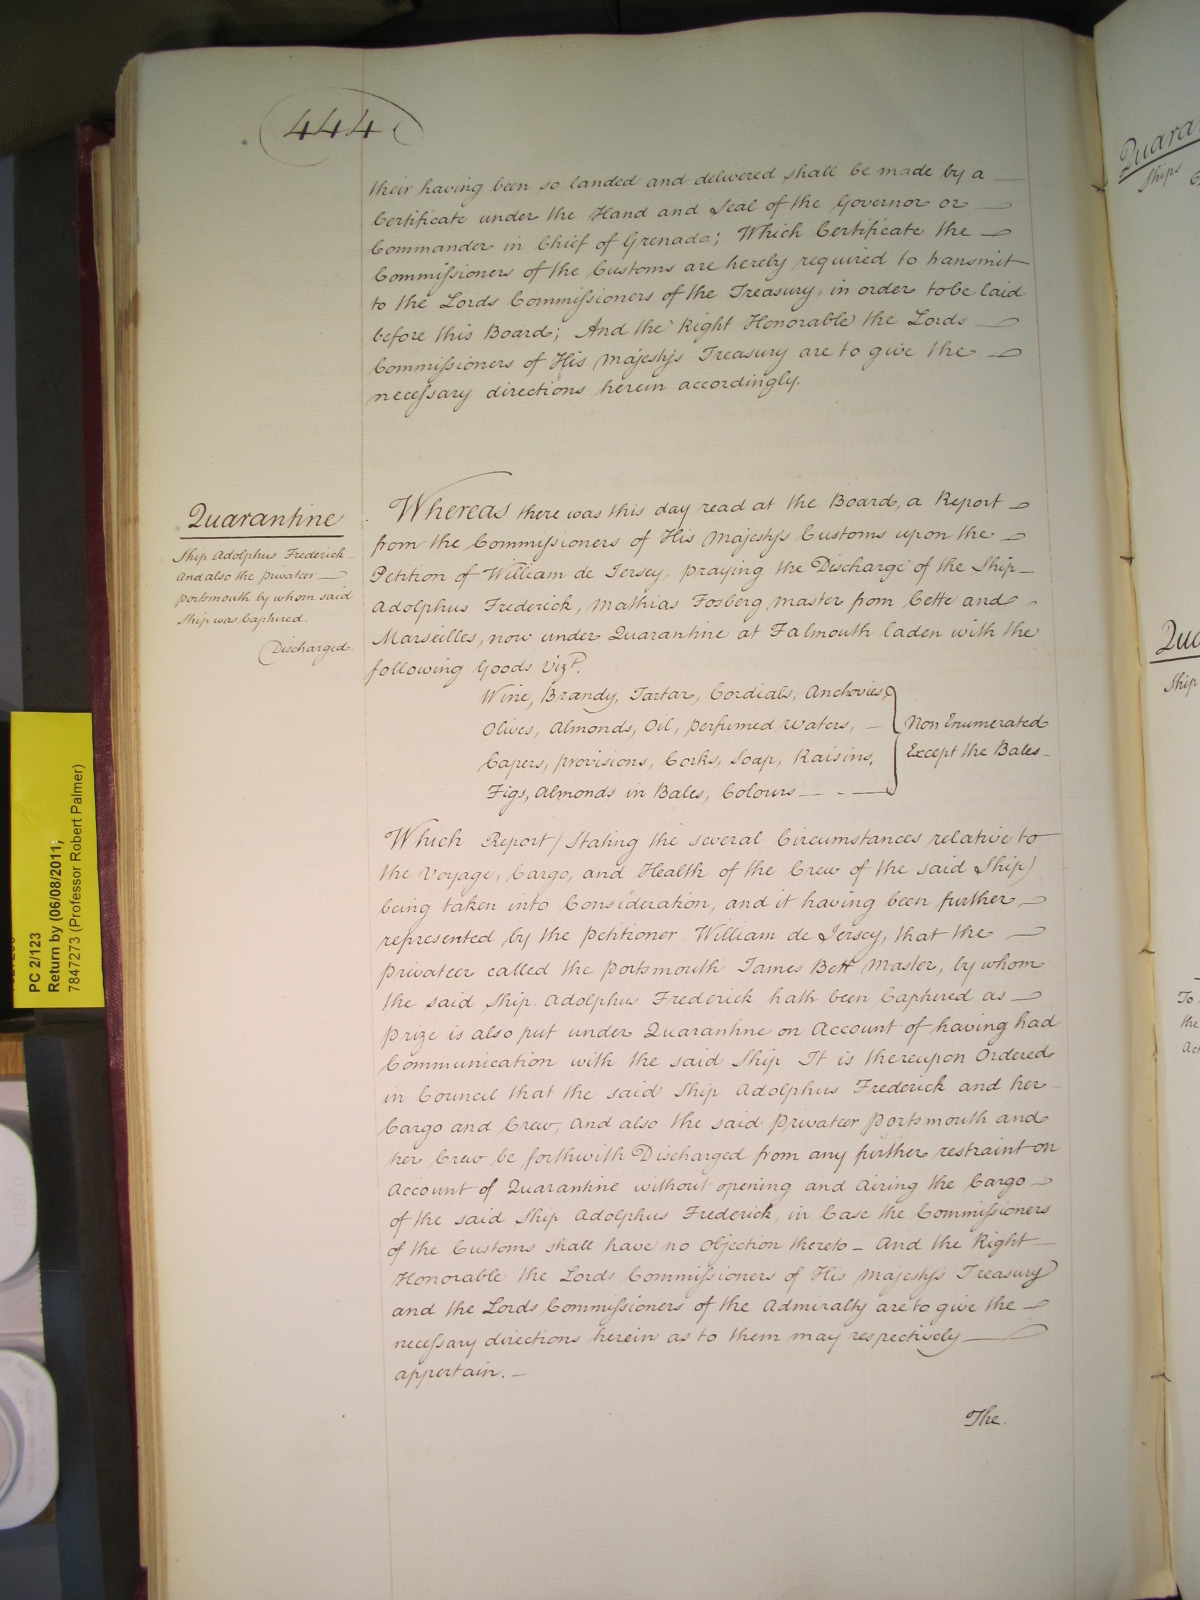 444
their having been so landed and delivered shall be made by a
Certificate under the Hand and Seal of the Governor or
Commander in Chief of Grenada; Which Certificate the
Commissioners of the Customs are hereby required to transmit
to the Lords Commissioners of the Treasury, in order to be laid
before this Board; And the Right Honorable the Lords
Commissioners of His Majesty's Treasury are to give the
necessary directions herein accordingly.
Quarantine
Ship Adolphus Frederick
and also the Privateer
Portsmouth by whom said
Ship was Captured.
Discharged.
Whereas there was this day read at the Board, a Report
from the Commissioners of His Majesty's Customs upon the
Petition of William de Jersey, praying the Discharge of the Ship
Adolphus Frederick, Mathias Fosberg Master from Cette and
Marseilles, now under Quarantine at Falmouth laden with the
following Goods Vizt.
Wine, Brandy, Tartar, Cordials, Anchovies,
Olives, Almonds, Oil, perfumed waters,
Capers, provisions, Corks, Soap, Raisins,
Figs, Almonds in Bales, Colours
Non Enumerated
Except the Bales
Which Report (Stating the several Circumstances relative to
the Voyage, Cargo, and Health of the Crew of the said Ship)
being taken into Consideration, and it having been further
represented by the Petitioner William de Jersey, that the
Privateer called the Portsmouth James Bett Master, by whom
the said Ship Adolphus Frederick hath been Captured as
Prize is also put under Quarantine on Account of having had
Communication with the said Ship It is thereupon Ordered
in Council that the said Ship Adolphus Frederick and her
Cargo and Crew, and also the said Privateer Portsmouth and
her Crew be forthwith Discharged from any further restraint on
Account of Quarantine without opening and Airing the Cargo
of the said Ship Adolphus Frederick, in Case the Commissioners
of the Customs shall have no Objection thereto - And the Right
Honorable the Lords Commissioners of His Majesty's Treasury
and the Lords Commissioners of the Admiralty are to give the
necessary directions herein as to them may respectively
appertain.
The
PC 2/123
Return by (06/08/2011;
7847273 (Professor Robert Palmer)
Quara
Ships
Qua
Ship
To
the